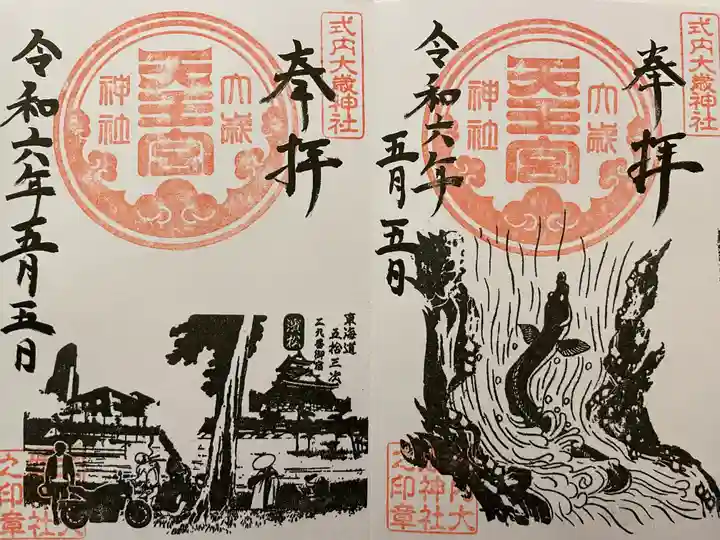 式内大歳神社
奉拝
天王宮
大歳
神社
令和六年五月五日
東海道
五拾三次
濱松
之印章
式内大歳神社
奉拝
天王宮
大歳
神社
令和六年
五月五日
之印章